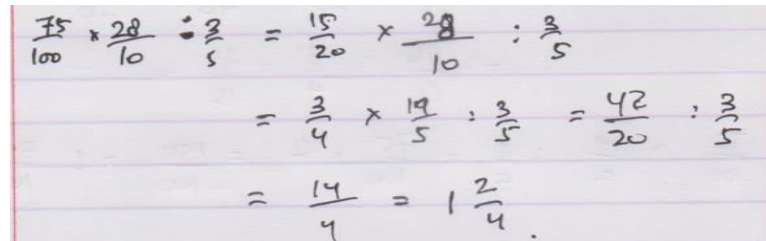 75/100 × 28/10 : 3/5 = 15/20 × 28/10 : 3/5
= 3/4 × 14/5 : 3/5 = 42/20 : 3/5
= 14/4 = 1 2/4.